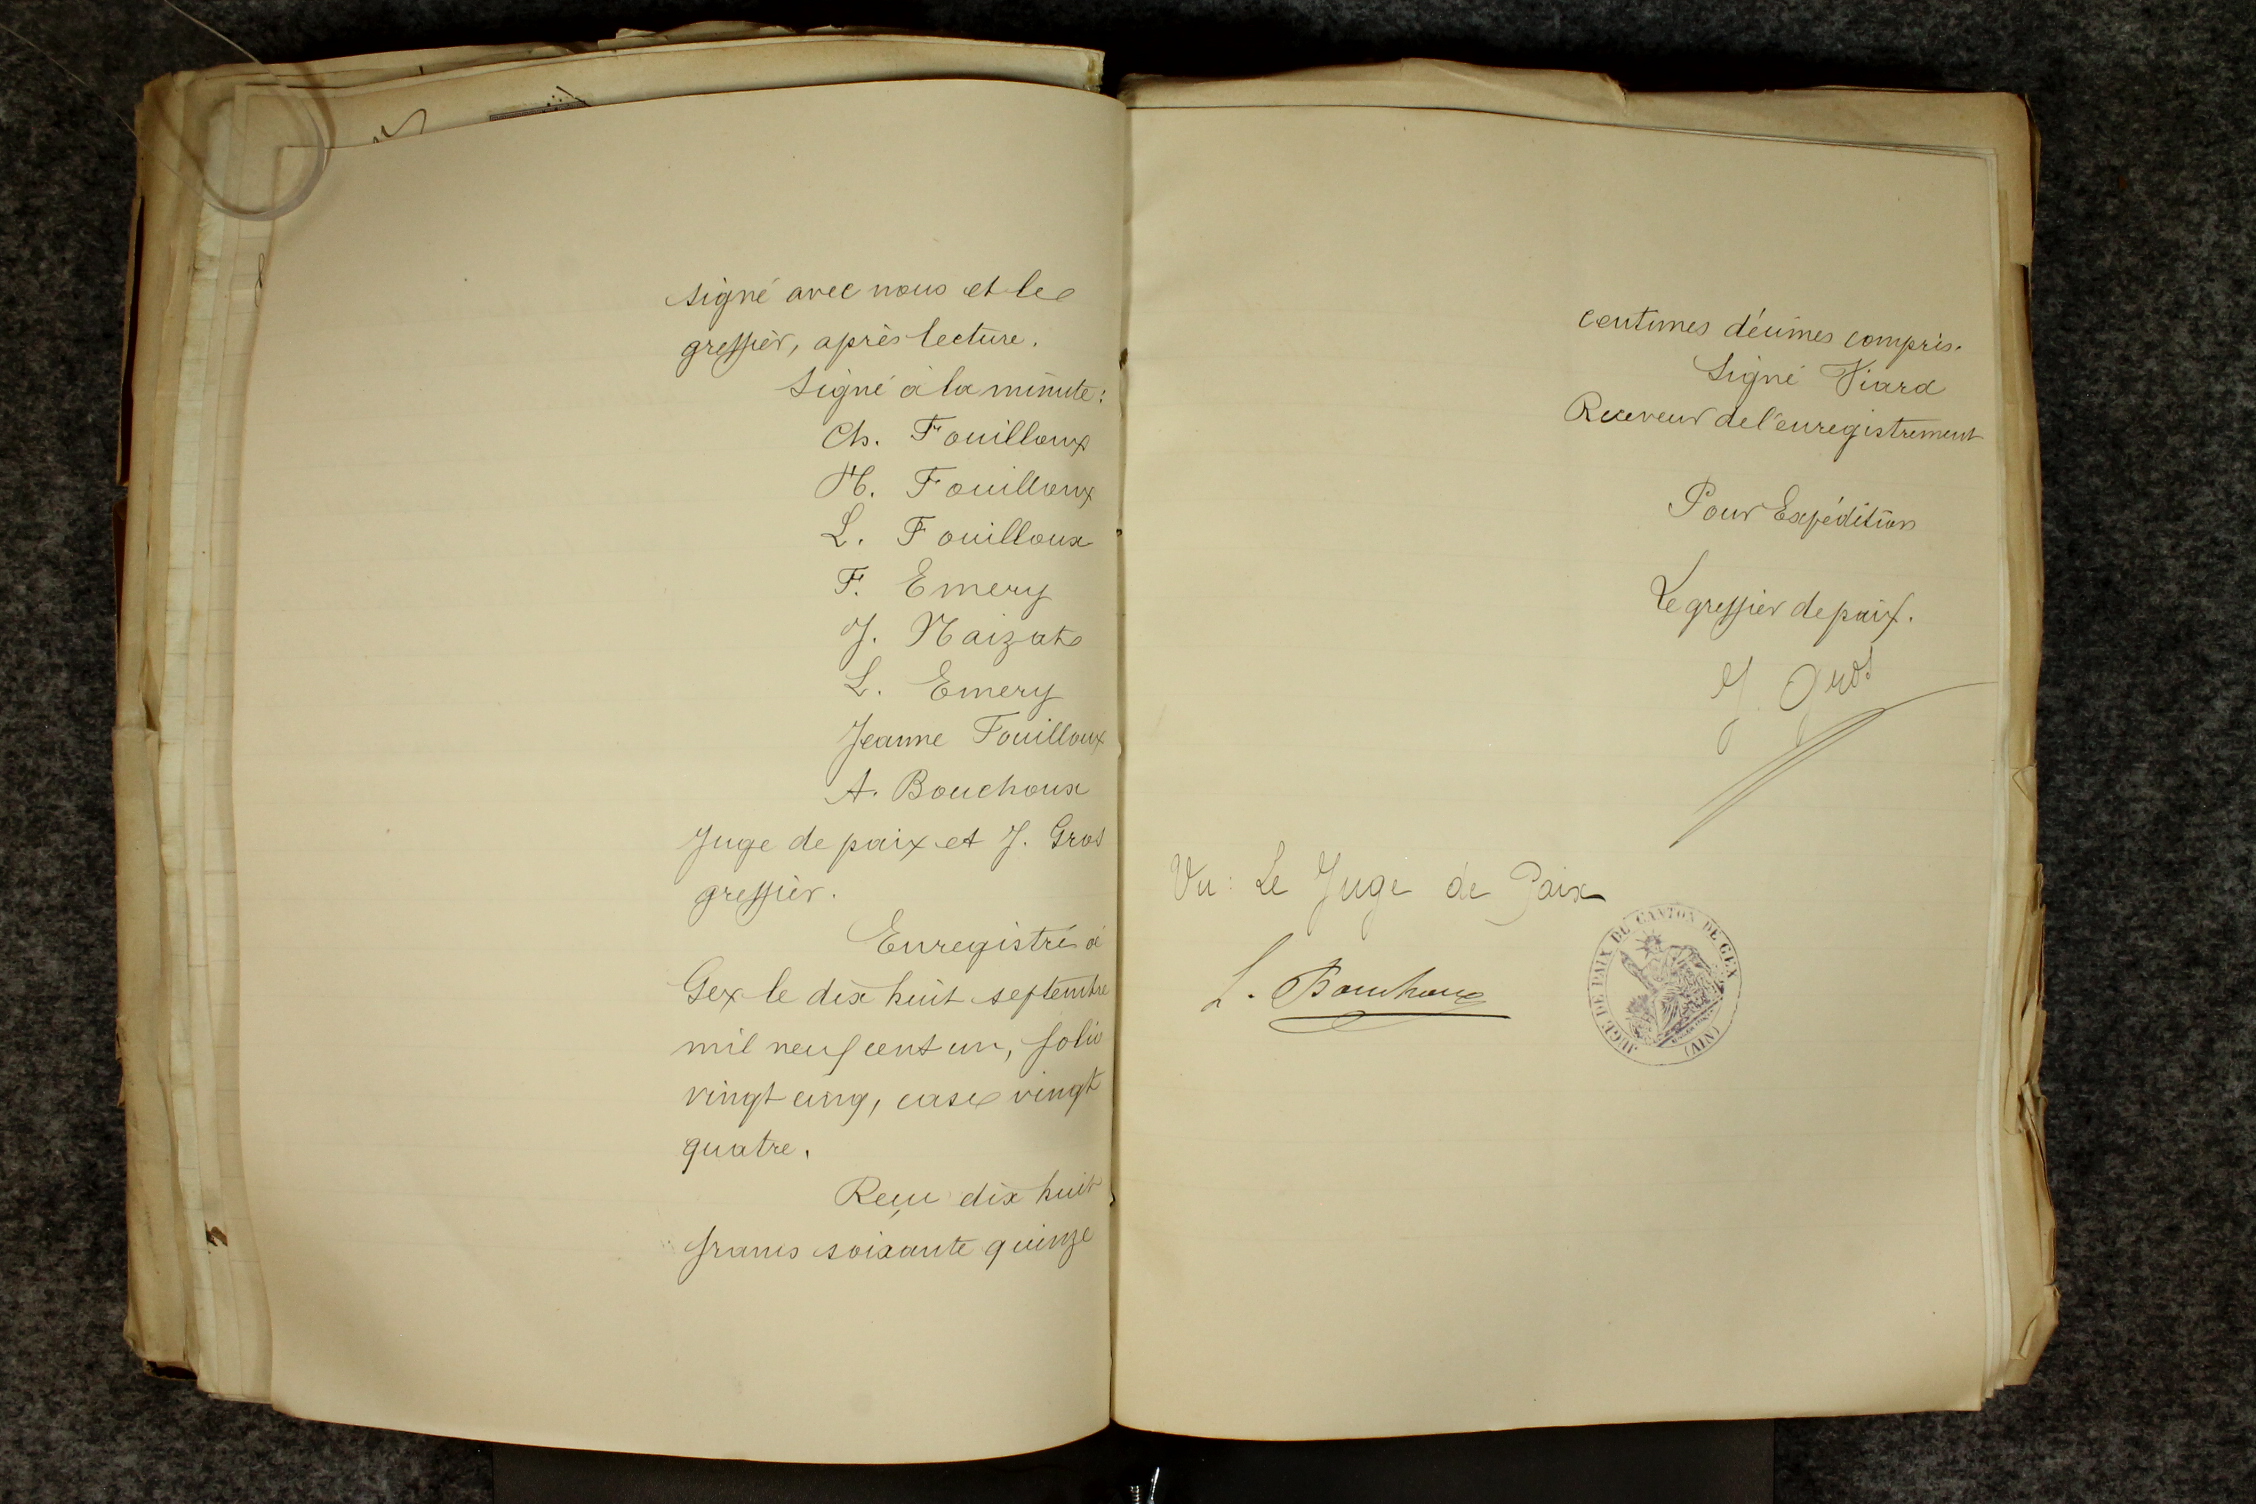 signé avec nous et le
greffier, après lecture.
Signé à la minute:
Ch. Fouilloux
H. Fouilloux
L. Fouilloux
F. Emery
J. Maizat
L. Emery
Jeanne Fouilloux
A. Bouchoux
Juge de paix et J. Gros
greffier.
Enregistré à
Gex le dix huit septembre
mil neuf cent un, folio
vingt cinq, case vingt
quatre.
Reçu dix huit
francs soixante quinze
centimes décimes compris.
Signé Viard
Receveur de l'enregistrement
Pour Expédition
Le greffier de paix.
J. Gros
Vu: Le Juge de Paix
L. Bouchoux
JUGE DE PAIX DU CANTON DE GEX
(AIN)